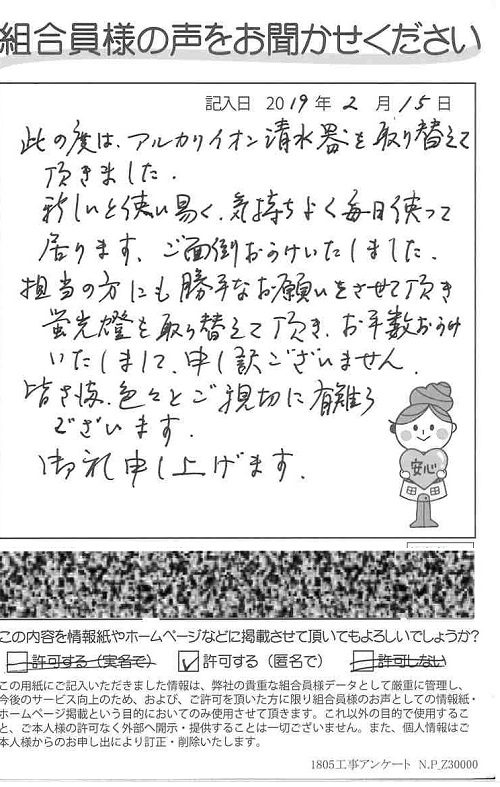 組合員様の声をお聞かせください
記入日 2019年 2月 15日
此の度は、アルカリイオン清水器を取り替えて
頂きました.
新しいと使い易く、気持ちよく毎日使って
居ります、ご面倒おかけいたしました.
担当の方にも勝手なお願いをさせて頂き
蛍光燈を取り替えて頂き、お手数おかけ
いたしまして、申し訳ございません.
皆さま、色々とご親切に有難う
ございます.
御礼申し上げます.
安心
この内容を情報紙やホームページなどに掲載させて頂いてもよろしいでしょうか?
許可する（実名で） 許可する（匿名で） 許可しない
この用紙にご記入いただきました情報は、弊社の貴重な組合員様データとして厳重に管理し、
今後のサービス向上のため、および、ご許可を頂いた方に限り組合員様のお声としての情報紙・
ホームページ掲載という目的においてのみ使用させて頂きます。これ以外の目的で使用するこ
と、ご本人様の許可なく外部へ開示・提供することは一切ございません。また、個人情報はご
本人様からのお申し出により訂正・削除いたします。
1805工事アンケート N.P_Z30000